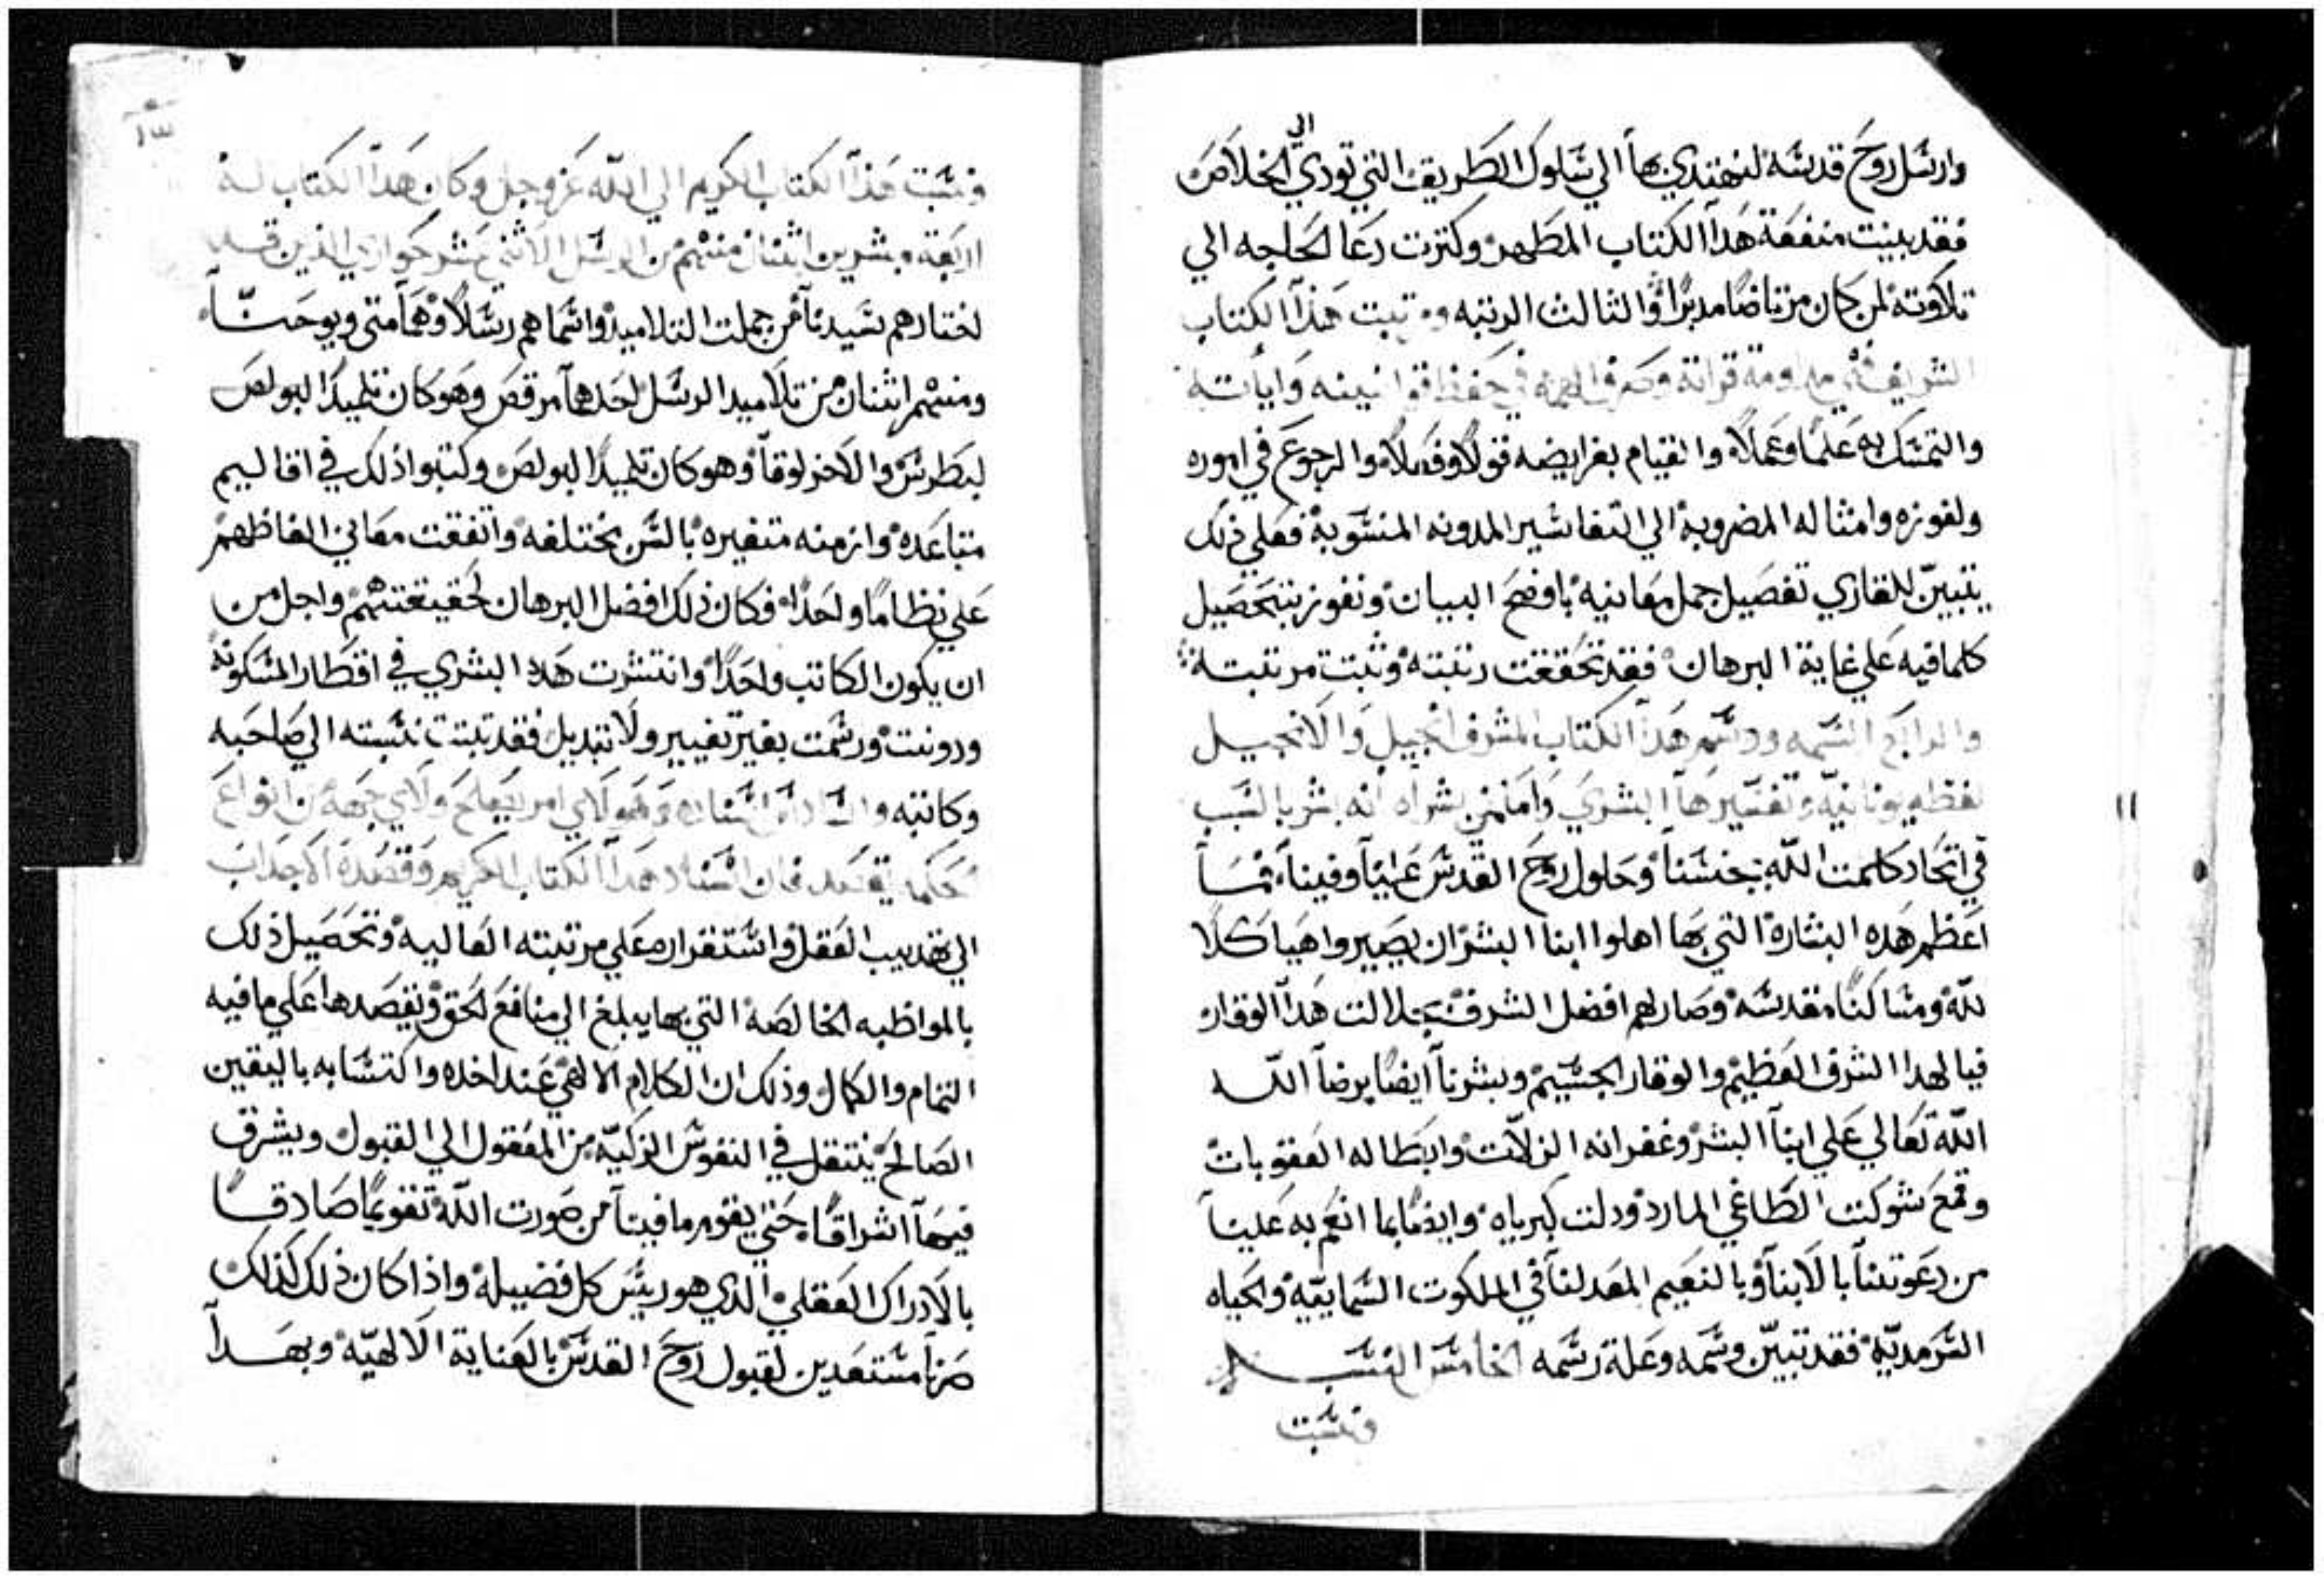 وارسل روح قدسه لنهتدي بها الي سلوك الطريق التي تودي الي الخلاص
فقد بينت منفعة هدا الكتاب المطهر وكترت دعا الحاجه الي
تلاوته لمن كان مرتاضا مدبرا والثالث الرتبه ومرتبت هذا الكتاب
الشريف في مداومة قراته وصرف الهمه في حفظ قوانينه واياته
والتمسك به علما وعملا والقيام بفرايضه قولا وفعلا والرجوع في اموره
ولغوزه وامثاله المضروبه الي التفاسير المدونه المنسوبه فعلي ذلك
يتبين للقاري تفصيل جمل معانيه باوضح البيان ونفوز بتحصيل
كلما فيه علي غاية البرهان فقد تحققت رتبته وثبت مرتبته
والرابع السمه ووسم هدا الكتاب المشرف انجيل والانجيل
لفظه يونانيه وتفسيرها البشري وامامن بشراه انه بشر بالسبب
في اتحاد كلمت الله بجنسنا وحلول روح القدس علينا وفينا فما
اعظم هده البشارة التي بها اهلوا ابنا البشر ان يصيروا هياكلا
لله ومساكنا مقدسه وصار لهم افضل الشرف بجلالت هدا الوقار
فيا لهدا الشرف العظيم والوقار الجسيم وبشرنا ايضا برضا الله
الله تعالي علي ابنا البشر وغفرانه الزلات وابطاله العقوبات
وقمع شوكت الطاغي المارد ودلت كبرياه وايضا بما انعم به علينا
من دعوتنا بالابنا وبالنعيم المعد لنا في الملكوت السمايية والحياه
السرمديه فقد تبين وسمه وعلة رسمه الخامس النسب
ونسبت
١٣
ونسبت هذا الكتاب الكريم الي الله عز وجل وكان هدا الكتاب له
اربعة مبشرين اثنان منهم من الرسل الاثني عشر حواري الذين قد
اختارهم سيدنا من جملت التلاميد واسماهم رسلا وهما متي ويوحنا
ومنهم اثنان من تلاميد الرسل احدهما مرقص وهو كان تلميدا لبولص
لبطرس والاخر لوقا وهو كان تلميدا لبولص وكتبوا ذلك في اقاليم
متباعده وازمنه متغيره بالسن مختلفه واتفقت معاني الفاظهم
علي نظاما واحدا فكان ذلك افضل البرهان لحقيقتهم واجل من
ان يكون الكاتب واحدا وانتشرت هده البشري في اقطار المسكونه
ودونت ورسمت بغير تغيير ولا تبديل فقد تبتت نسبته الي صاحبه
وكاتبه والسادس اسناده وهو لاي امر يصلح ولاي جهة من انواع
يقصد فان اسناد هدا الكتاب الكريم وقصده الاجداب
الي تهديب العقل واستقراره علي مرتبته العاليه وتحصيل ذلك
بالمواظبه الخالصه التي بها يبلغ الي منافع الحق ونقصدها علي ما فيه
التمام والكمال وذلك ان الكلام الالهي عند اخده واكتسابه باليقين
الصالح ينتقل في النفوس الزكيه من المعقول الي القبول ويشرق
فيها اشراقا حتي يقوم ما فينا من صورت الله تقويما صادقا
بالادراك العقلي الدي هو ريس كل فضيله واذا كان ذلك كذلك
صرنا مستعدين لقبول روح القدس بالعناية الالهيه وبهدا